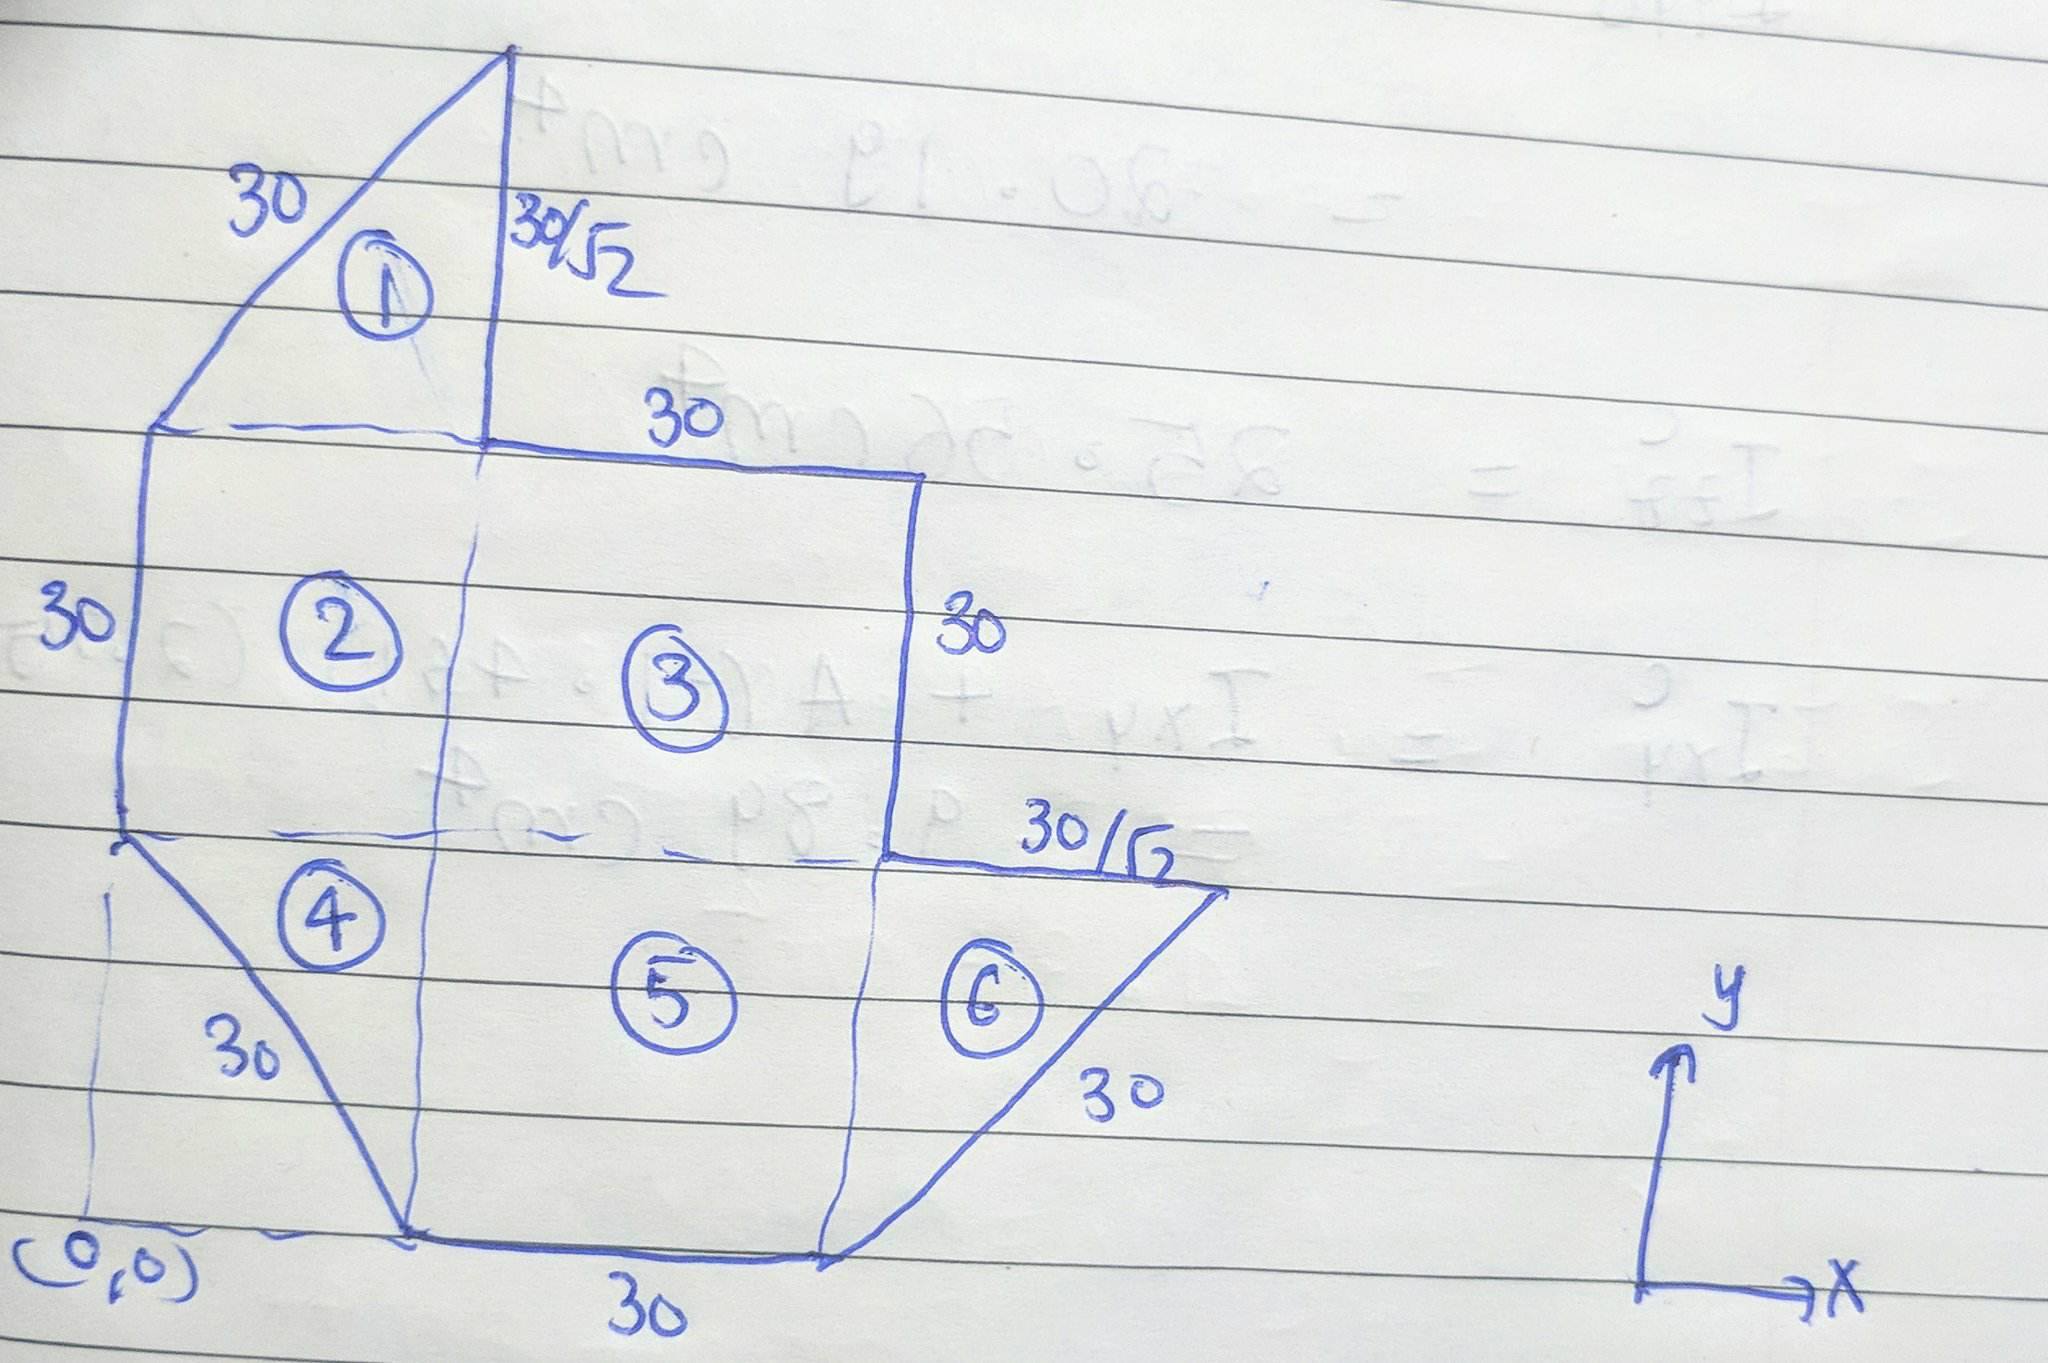 30
30/√2
①
30
30
②
③
30
30/√2
④
⑤
⑥
30
30
(0,0)
30
y
x